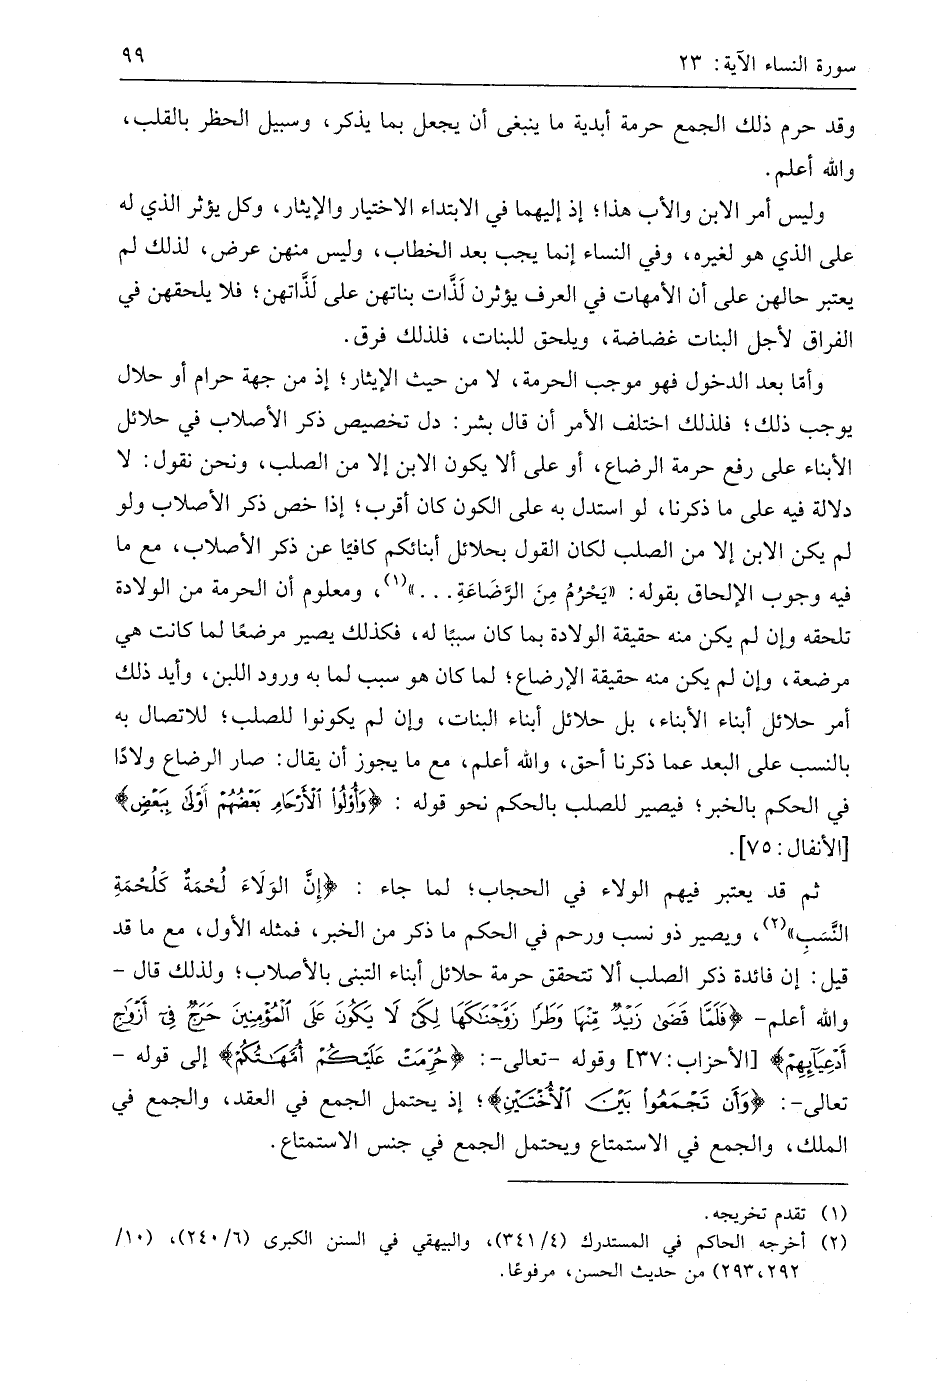 سورة النساء الآية: ٢٣
٩٩
وقد حرم ذلك الجمع حرمة أبدية ما ينبغى أن يجعل بما يذكر، وسبيل الحظر بالقلب،
والله أعلم.
وليس أمر الابن والأب هذا؛ إذ إليهما في الابتداء الاختيار والإيثار، وكل يؤثر الذي له
على الذي هو لغيره، وفي النساء إنما يجب بعد الخطاب، وليس منهن عرض، لذلك لم
يعتبر حالهن على أن الأمهات في العرف يؤثرن لَذَّات بناتهن على لَذَّاتهن؛ فلا يلحقهن في
الفراق لأجل البنات غضاضة، ويلحق للبنات، فلذلك فرق.
وأمّا بعد الدخول فهو موجب الحرمة، لا من حيث الإيثار؛ إذ من جهة حرام أو حلال
يوجب ذلك؛ فلذلك اختلف الأمر أن قال بشر: دل تخصيص ذكر الأصلاب في حلائل
الأبناء على رفع حرمة الرضاع، أو على ألا يكون الابن إلا من الصلب، ونحن نقول: لا
دلالة فيه على ما ذكرنا، لو استدل به على الكون كان أقرب؛ إذا خص ذكر الأصلاب ولو
لم يكن الابن إلا من الصلب لكان القول بحلائل أبنائكم كافيًا عن ذكر الأصلاب، مع ما
فيه وجوب الإلحاق بقوله: «يَحْرُمُ مِنَ الرَّضَاعَةِ...»(١)، ومعلوم أن الحرمة من الولادة
تلحقه وإن لم يكن منه حقيقة الولادة بما كان سببًا له، فكذلك يصير مرضعًا لما كانت هي
مرضعة، وإن لم يكن منه حقيقة الإرضاع؛ لما كان هو سبب لما به ورود اللبن، وأيد ذلك
أمر حلائل أبناء الأبناء، بل حلائل أبناء البنات، وإن لم يكونوا للصلب؛ للاتصال به
بالنسب على البعد عما ذكرنا أحق، والله أعلم، مع ما يجوز أن يقال: صار الرضاع ولادًا
في الحكم بالخبر؛ فيصير للصلب بالحكم نحو قوله : ﴿وَأُوْلُواْ ٱلْأَرْحَامِ بَعْضُهُمْ أَوْلَىٰ بِبَعْضٍ﴾
[الأنفال:٧٥].
ثم قد يعتبر فيهم الولاء في الحجاب؛ لما جاء : ﴿إِنَّ الوَلَاءَ لُحْمَةٌ كَلُحْمَةِ
النَّسَبِ»(٢)، ويصير ذو نسب ورحم في الحكم ما ذكر من الخبر، فمثله الأول، مع ما قد
قيل: إن فائدة ذكر الصلب ألا تتحقق حرمة حلائل أبناء التبنى بالأصلاب؛ ولذلك قال –
والله أعلم– ﴿فَلَمَّا قَضَىٰ زَيْدٌ مِّنْهَا وَطَرًا زَوَّجْنَٰكَهَا لِكَىْ لَا يَكُونَ عَلَى ٱلْمُؤْمِنِينَ حَرَجٌ فِىٓ أَزْوَٰجِ
أَدْعِيَآئِهِمْ﴾ [الأحزاب:٣٧] وقوله –تعالى–: ﴿حُرِّمَتْ عَلَيْكُمْ أُمَّهَٰتُكُمْ﴾ إلى قوله –
تعالى–: ﴿وَأَن تَجْمَعُواْ بَيْنَ ٱلْأُخْتَيْنِ﴾؛ إذ يحتمل الجمع في العقد، والجمع في
الملك، والجمع في الاستمتاع ويحتمل الجمع في جنس الاستمتاع.
(١) تقدم تخريجه.
(٢) أخرجه الحاكم في المستدرك (٣٤١/٤)، والبيهقي في السنن الكبرى (٢٤٠/٦)، (١٠/
٢٩٣،٢٩٢) من حديث الحسن، مرفوعًا.